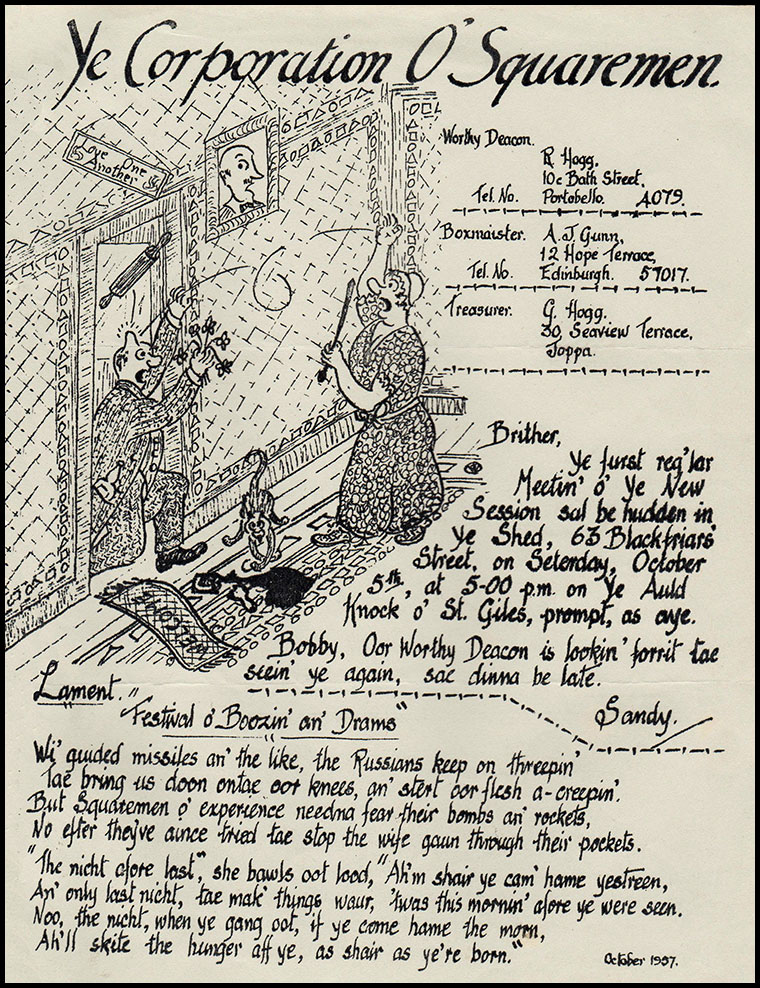 Ye Corporation O' Squaremen.
Love One
Another
Worthy Deacon.
R. Hogg,
10c Bath Street,
Tel. No. Portobello. 4079.
Boxmaister. A. J. Gunn,
12 Hope Terrace,
Tel. No. Edinburgh. 57017.
Treasurer. G. Hogg.
30, Seaview Terrace,
Joppa.
Brither,
Ye furst reg'lar
Meetin' o' Ye New
Session sal be hudden in
Ye Shed, 63 Blackfriars'
Street, on Seterday, October
5th, at 5-00 p.m. on Ye Auld
Knock o' St. Giles, prompt, as aye.
Bobby, Oor Worthy Deacon is lookin' forrit tae
seein' ye again, sae dinna be late.
Sandy.
Lament.
"Festival o' Boozin' an' Drams"
Wi' guided missiles an' the like, the Russians keep on threepin'
Tae bring us doon ontae oor knees, an' stert oor flesh a-creepin'.
But Squaremen o' experience needna fear their bombs an' rockets,
No efter they've aince tried tae stop the wife gaun through their pockets.
"The nicht afore last", she bawls oot lood, "Ah'm shair ye cam' hame yestreen,
An' only last nicht, tae mak' things waur, 'twas this mornin' afore ye were seen.
Noo, the nicht, when ye gang oot, if ye come hame the morn,
Ah'll skite the hunger aff ye, as shair as ye're born."
October 1957.